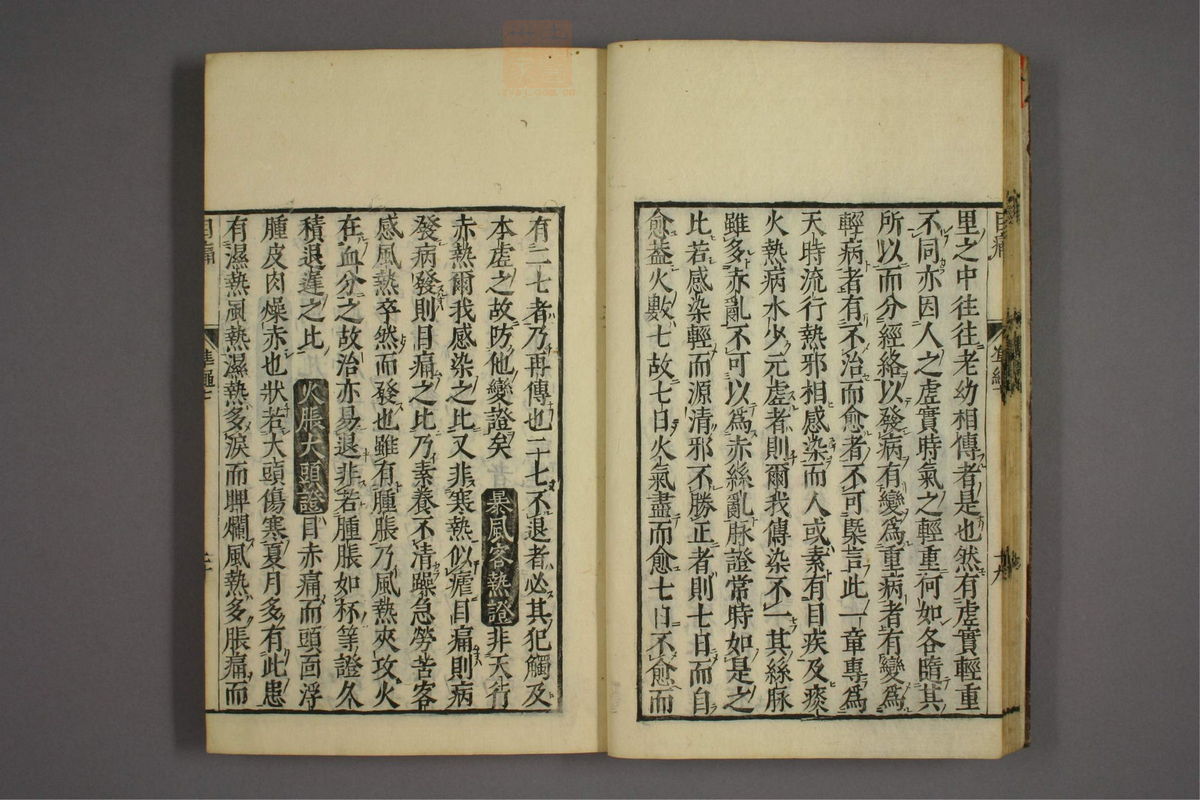 里之中往往老幼相傳者是也然有虛實輕重
不同亦因人之虛實時氣之輕重何如各隨其
所以而分經絡以發病有變爲重病者有變爲
輕病者有不治而愈者不可槩言此一章專爲
天時流行熱邪相感染而人或素有目疾及痰
火熱病水少元虛者則爾我傳染不一其絲脉
雖多亦亂不可以爲赤絲亂脉證常時如是之
比若感染輕而源清邪不勝正者則七日而自
愈葢火數七故七日火氣盡而愈七日不愈而
有二七者乃再傳也二十七不退者必其犯觸及
本虛之故防他變證矣 暴風客熱證 非天行
赤熱爾我感染之比又非寒熱似瘧目痛則病
發病發則目痛之比乃素養不清躁急勞苦客
感風熱卒然而發也雖有腫脹乃風熱夾攻火
在血分之故治亦易退非若腫脹如杯等證久
積退遲之比 火脹大頭證 目赤痛而頭面浮
腫皮肉燥赤也狀若大頭傷寒夏月多有此患
有濕熱風熱濕熱多淚而睥爛風熱多脹痛而
目痛